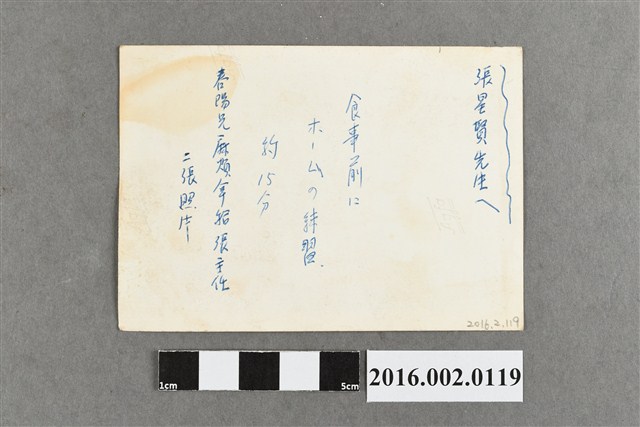 張星賢先生へ
食事前に
ホームの練習
約15分
春陽兄麻煩拿給張主任
二張照片
2016.2.119
1cm
5cm
2016.002.0119